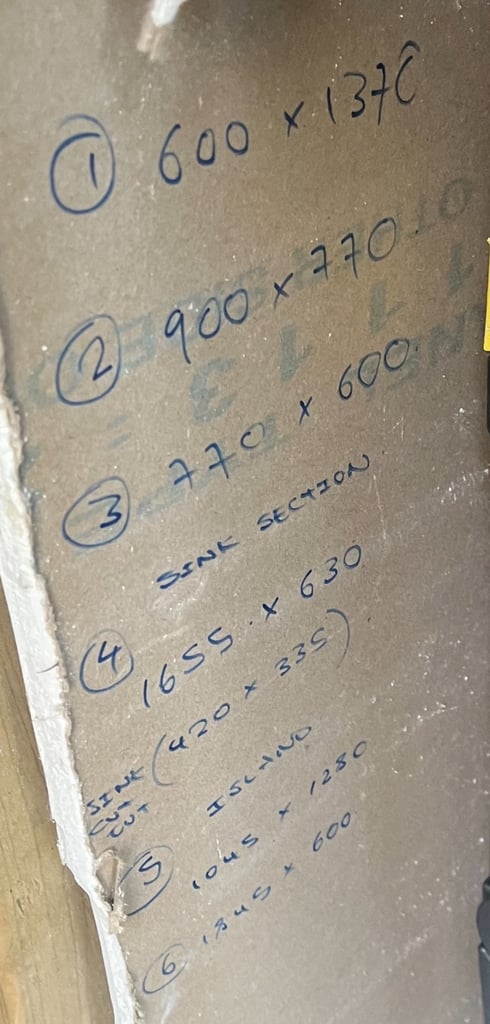 ① 600 x 1370
② 900 x 770
③ 770 x 600
SINK SECTION
④ 1655 x 630
SINK CUT OUT (420 x 335)
ISLAND
⑤ 1045 x 1250
⑥ 1845 x 600